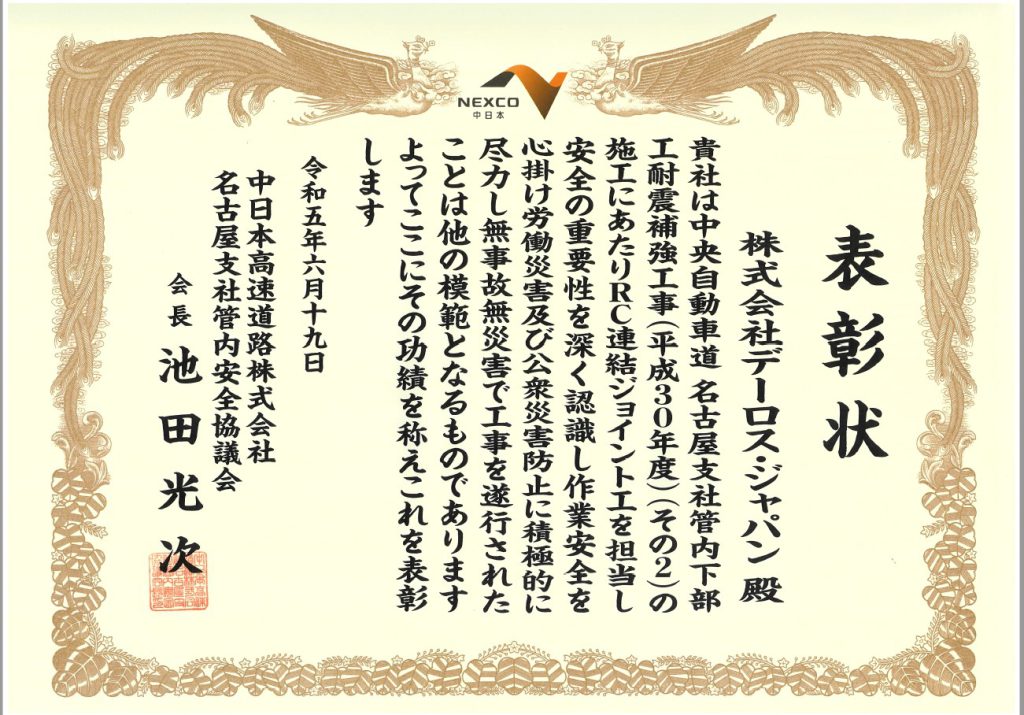 NEXCO
中日本
表彰状
株式会社デーロス・ジャパン 殿
貴社は中央自動車道 名古屋支社管内下部
工耐震補強工事(平成30年度)(その2)の
施工にあたりRC連結ジョイント工を担当し
安全の重要性を深く認識し作業安全を
心掛け労働災害及び公衆災害防止に積極的に
尽力し無事故無災害で工事を遂行された
ことは他の模範となるものであります
よってここにその功績を称えこれを表彰
します
令和五年六月十九日
中日本高速道路株式会社
名古屋支社管内安全協議会
会長 池田光次